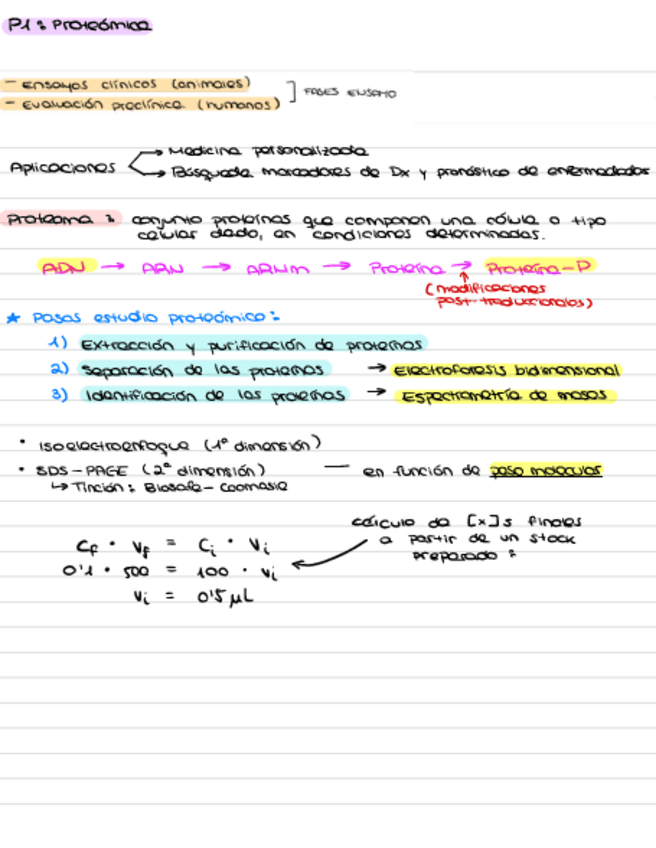 P1: Proteómica
- Ensayos clínicos (animales)
- Evaluación preclínica (humanos)
] FASES ENSAYO
Aplicaciones → Medicina personalizada
→ Búsqueda marcadores de Dx y pronóstico de enfermedades
Proteoma: conjunto proteínas que componen una célula o tipo
celular dado, en condiciones determinadas.
ADN → ARN → ARNm → Proteína → Proteína-P
↑
(modificaciones
post-traduccionales)
★ Pasos estudio proteómico:
1) Extracción y purificación de proteínas
2) Separación de las proteínas → Electroforesis bidimensional
3) Identificación de las proteínas → Espectrometría de masas
• Isoelectroenfoque (1ª dimensión)
• SDS-PAGE (2ª dimensión) — en función de peso molecular
↳ Tinción: Biosafe-Coomasie
cálculo de [x]s finales
a partir de un stock
preparado:
Cf · Vf = Ci · Vi
0'1 · 500 = 100 · Vi
Vi = 0'5 μL